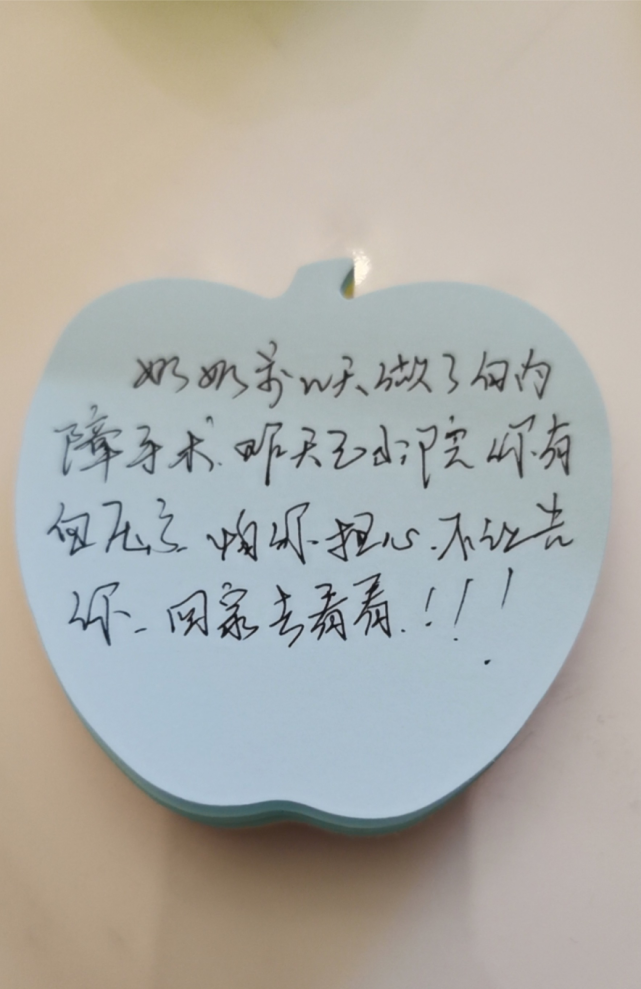 奶奶前几天做了白内
障手术.昨天已出院 你有
怕你.担心.不让告
你_回家去看看.!!!